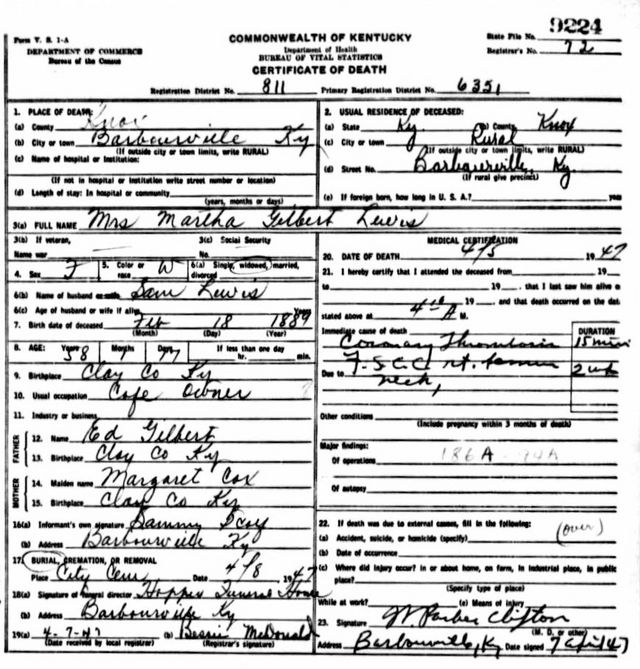 9224
Form V. S. 1-A
COMMONWEALTH OF KENTUCKY
State File No.
DEPARTMENT OF COMMERCE
Bureau of the Census
Department of Health
BUREAU OF VITAL STATISTICS
Registrar's No. 72
CERTIFICATE OF DEATH
Registration District No. 811 Primary Registration District No. 6351
1. PLACE OF DEATH:
(a) County Knox
(b) City or town Barbourville Ky
(If outside city or town limits, write RURAL)
(c) Name of hospital or Institution:
(If not in hospital or institution write street number or location)
(d) Length of stay: In hospital or community
(years, months or days)
2. USUAL RESIDENCE OF DECEASED:
(a) State Ky. (b) County Knox
(c) City or town Rural
(If outside city or town limits, write RURAL)
(d) Street No. Barbourville, Ky.
(If rural give precinct)
(e) If foreign born, how long in U. S. A.?
3(a) FULL NAME Mrs Martha Gilbert Lewis
3(b) If veteran,
Name war
3(c) Social Security
No.
4. Sex F 5. Color or race W 6(a) Single, widowed, married, divorced
6(b) Name of husband Sam Lewis
6(c) Age of husband or wife if alive Years
7. Birth date of deceased Feb 18 1889
(Month) (Day) (Year)
8. AGE: Years 58 Months 1 Days 17 If less than one day
hr. min.
9. Birthplace Clay Co Ky
10. Usual occupation Cafe Owner
11. Industry or business
FATHER
12. Name Ed Gilbert
13. Birthplace Clay Co Ky
MOTHER
14. Maiden name Margaret Cox
15. Birthplace Clay Co Ky
16(a) Informant's own signature Sammy
(b) Address Barbourville Ky
17. BURIAL, CREMATION, OR REMOVAL
Place City Cem, Date 4/8 1947
18(a) Signature of funeral director Hopper Funeral Home
(b) Address Barbourville Ky
19(a) 4-7-47 (b) Bessie McDonald
(Date received by local registrar) (Registrar's signature)
MEDICAL CERTIFICATION
20. DATE OF DEATH 4/5 1947
21. I hereby certify that I attended the deceased from 19
to 19, that I last saw him alive o
19, and that death occurred on the dat
stated above at 4 A M.
Immediate cause of death
DURATION
Coronary Thrombosis 15 min
Due to F.S.C.C. rt. femur 2 wk
neck,
Other conditions
(Include pregnancy within 3 months of death)
Major findings:
Of operations 186A - 94A
Of autopsy
22. If death was due to external causes, fill in the following:
(over)
(a) Accident, suicide, or homicide (specify)
(b) Date of occurrence
(c) Where did injury occur? in or about home, on farm, in industrial place, in public
place?
(Specify type of place)
While at work? (e) Means of injury
23. Signature W Parker Clifton
(M. D. or other)
Address Barbourville, Ky Date signed 7 April 47